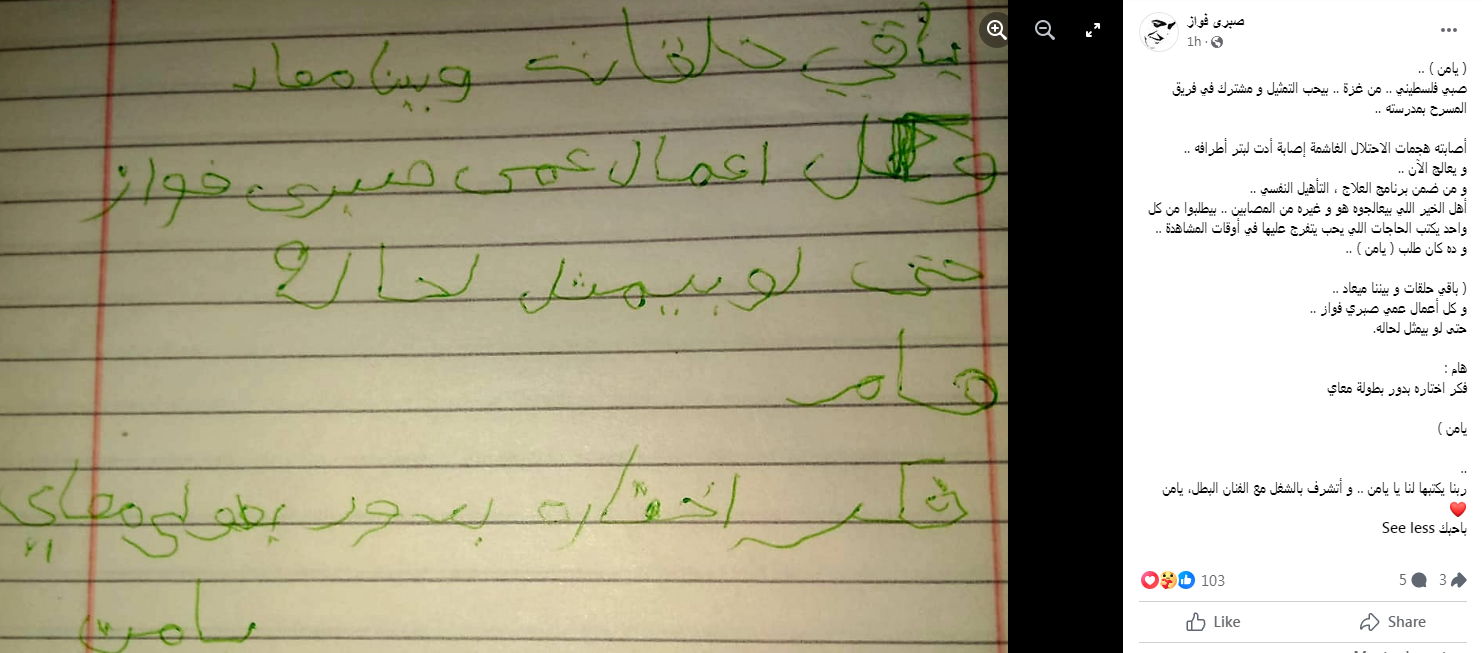 باقي حلقات وبينا معاد
وكل اعمال عمى صبرى فواز
حتى لو بيمثل لحالة
هام
فكر اختاره بدور بطولي معاي
يامن
صبرى فواز
1h
( يامن ) ..
صبي فلسطيني .. من غزة .. بيحب التمثيل و مشترك في فريق
المسرح بمدرسته ..
أصابته هجمات الاحتلال الغاشمة إصابة أدت لبتر أطرافه ..
و يعالج الآن ..
و من ضمن برنامج العلاج ، التأهيل النفسي ..
أهل الخير اللي بيعالجوه هو و غيره من المصابين .. بيطلبوا من كل
واحد يكتب الحاجات اللي يحب يتفرج عليها في أوقات المشاهدة ..
و ده كان طلب ( يامن ) ..
( باقي حلقات و بيننا ميعاد ..
و كل أعمال عمي صبري فواز ..
حتى لو بيمثل لحاله.
هام :
فكر اختاره بدور بطولة معاي
يامن )
..
ربنا يكتبها لنا يا يامن .. و أتشرف بالشغل مع الفنان البطل، يامن
❤️
باحبك See less
103
5 3
Like Share